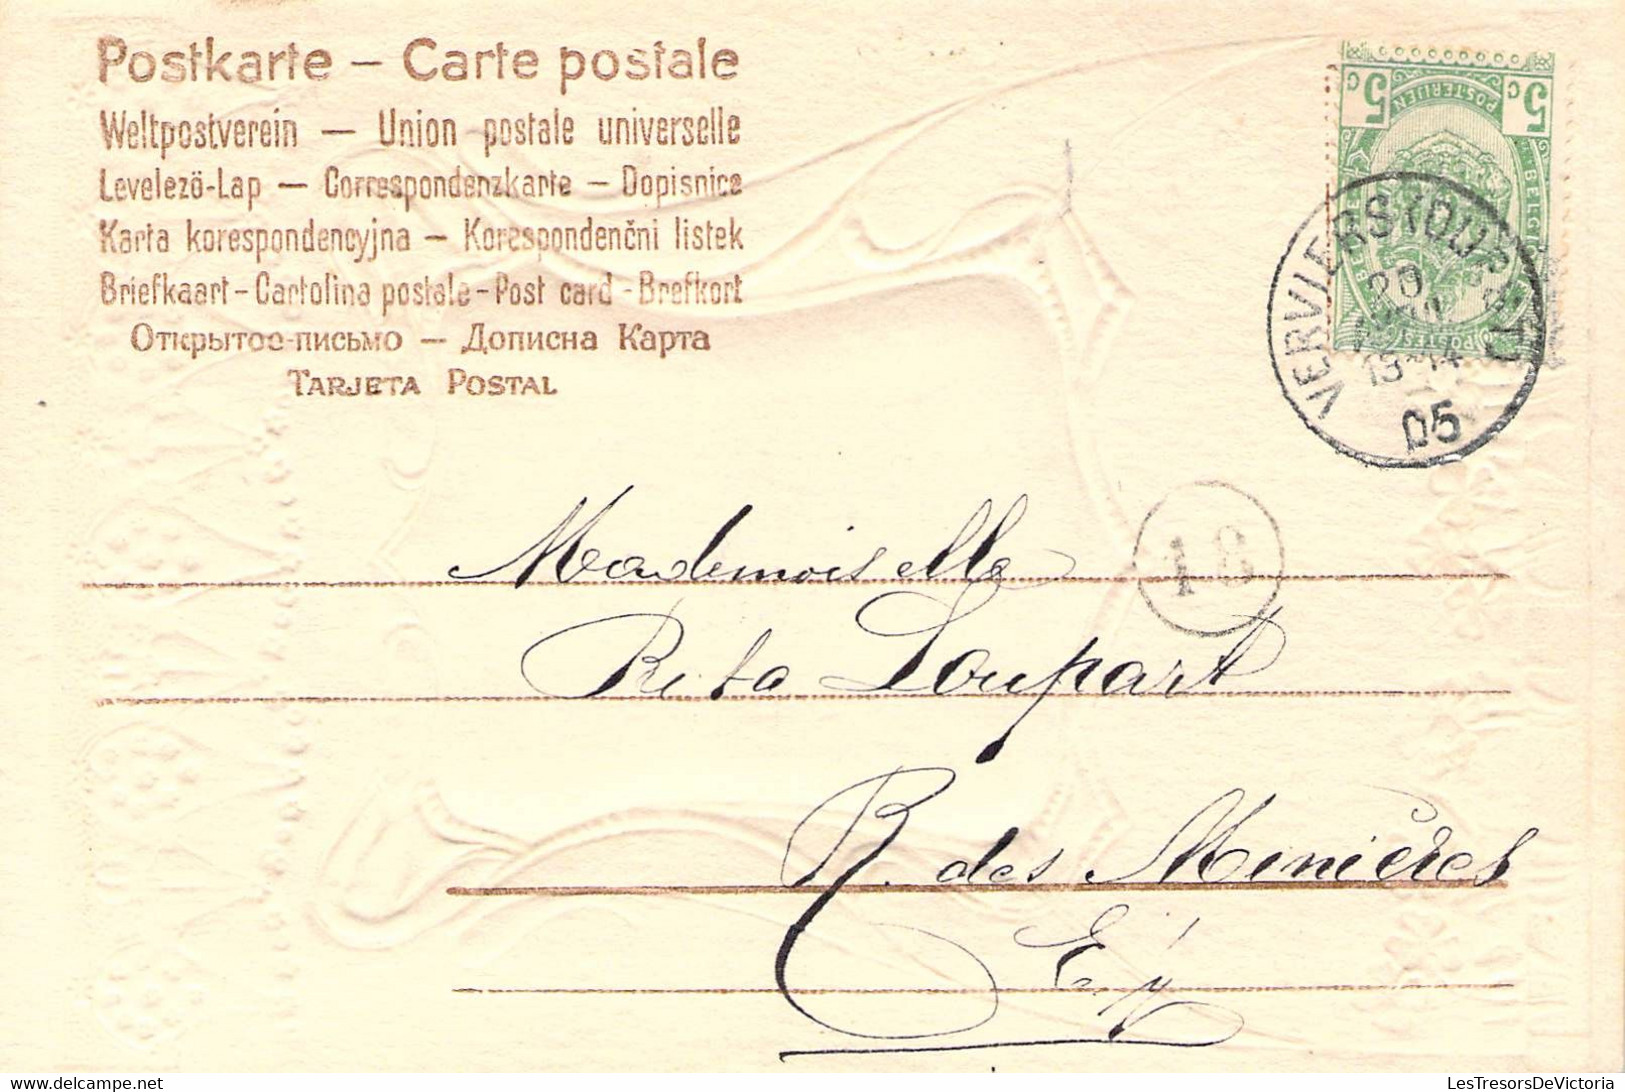 Postkarte – Carte postale
Weltpostverein — Union postale universelle
Levelező-Lap — Correspondenzkarte – Dopisnice
Karta korespondencyjna – Korespondenčni listek
Briefkaart - Cartolina postale - Post card - Brefkort
Открытое-письмо — Дописна Карта
TARJETA POSTAL
5 c
POSTERIJEN
5 c
BELGIQUE
POSTES
VERVIERS (OUEST)
20
13-14
05
18
Mademoiselle
Rita Loupart
R. des Minières
E/V
LesTresorsDeVictoria / delcampe.net